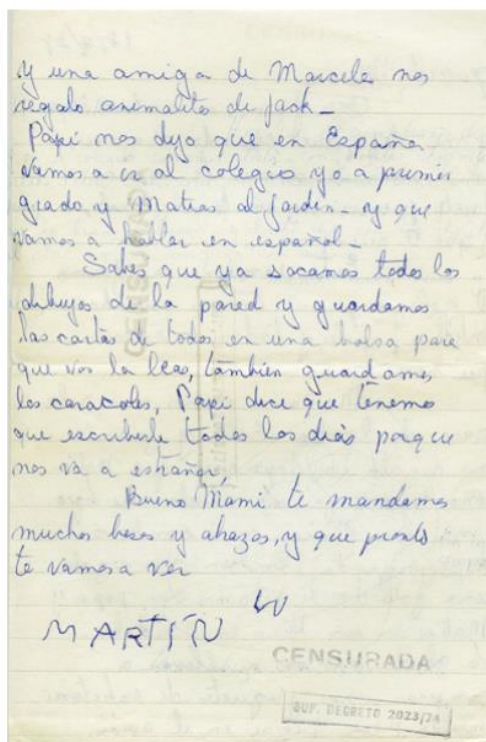 y una amiga de Marcela nos
regalo animalitos de Jack_
Papi nos dijo que en España
vamos a ir al colegio yo a primer
grado y Matias al jardin_ y que
vamos a hablar en español_
Sabes que ya sacamos todos los
dibujos de la pared y guardamos
las cartas de todos en una bolsa para
que vos la leas, también guardamos
los caracoles, Papi dice que tenemos
que escribirle todos los días porque
nos va a estrañar
Bueno Mami te mandamos
muchos besos y abazos, y que pronto
te vamos a ver
MARTIN
CENSURADA
SUP. DECRETO 2023/74